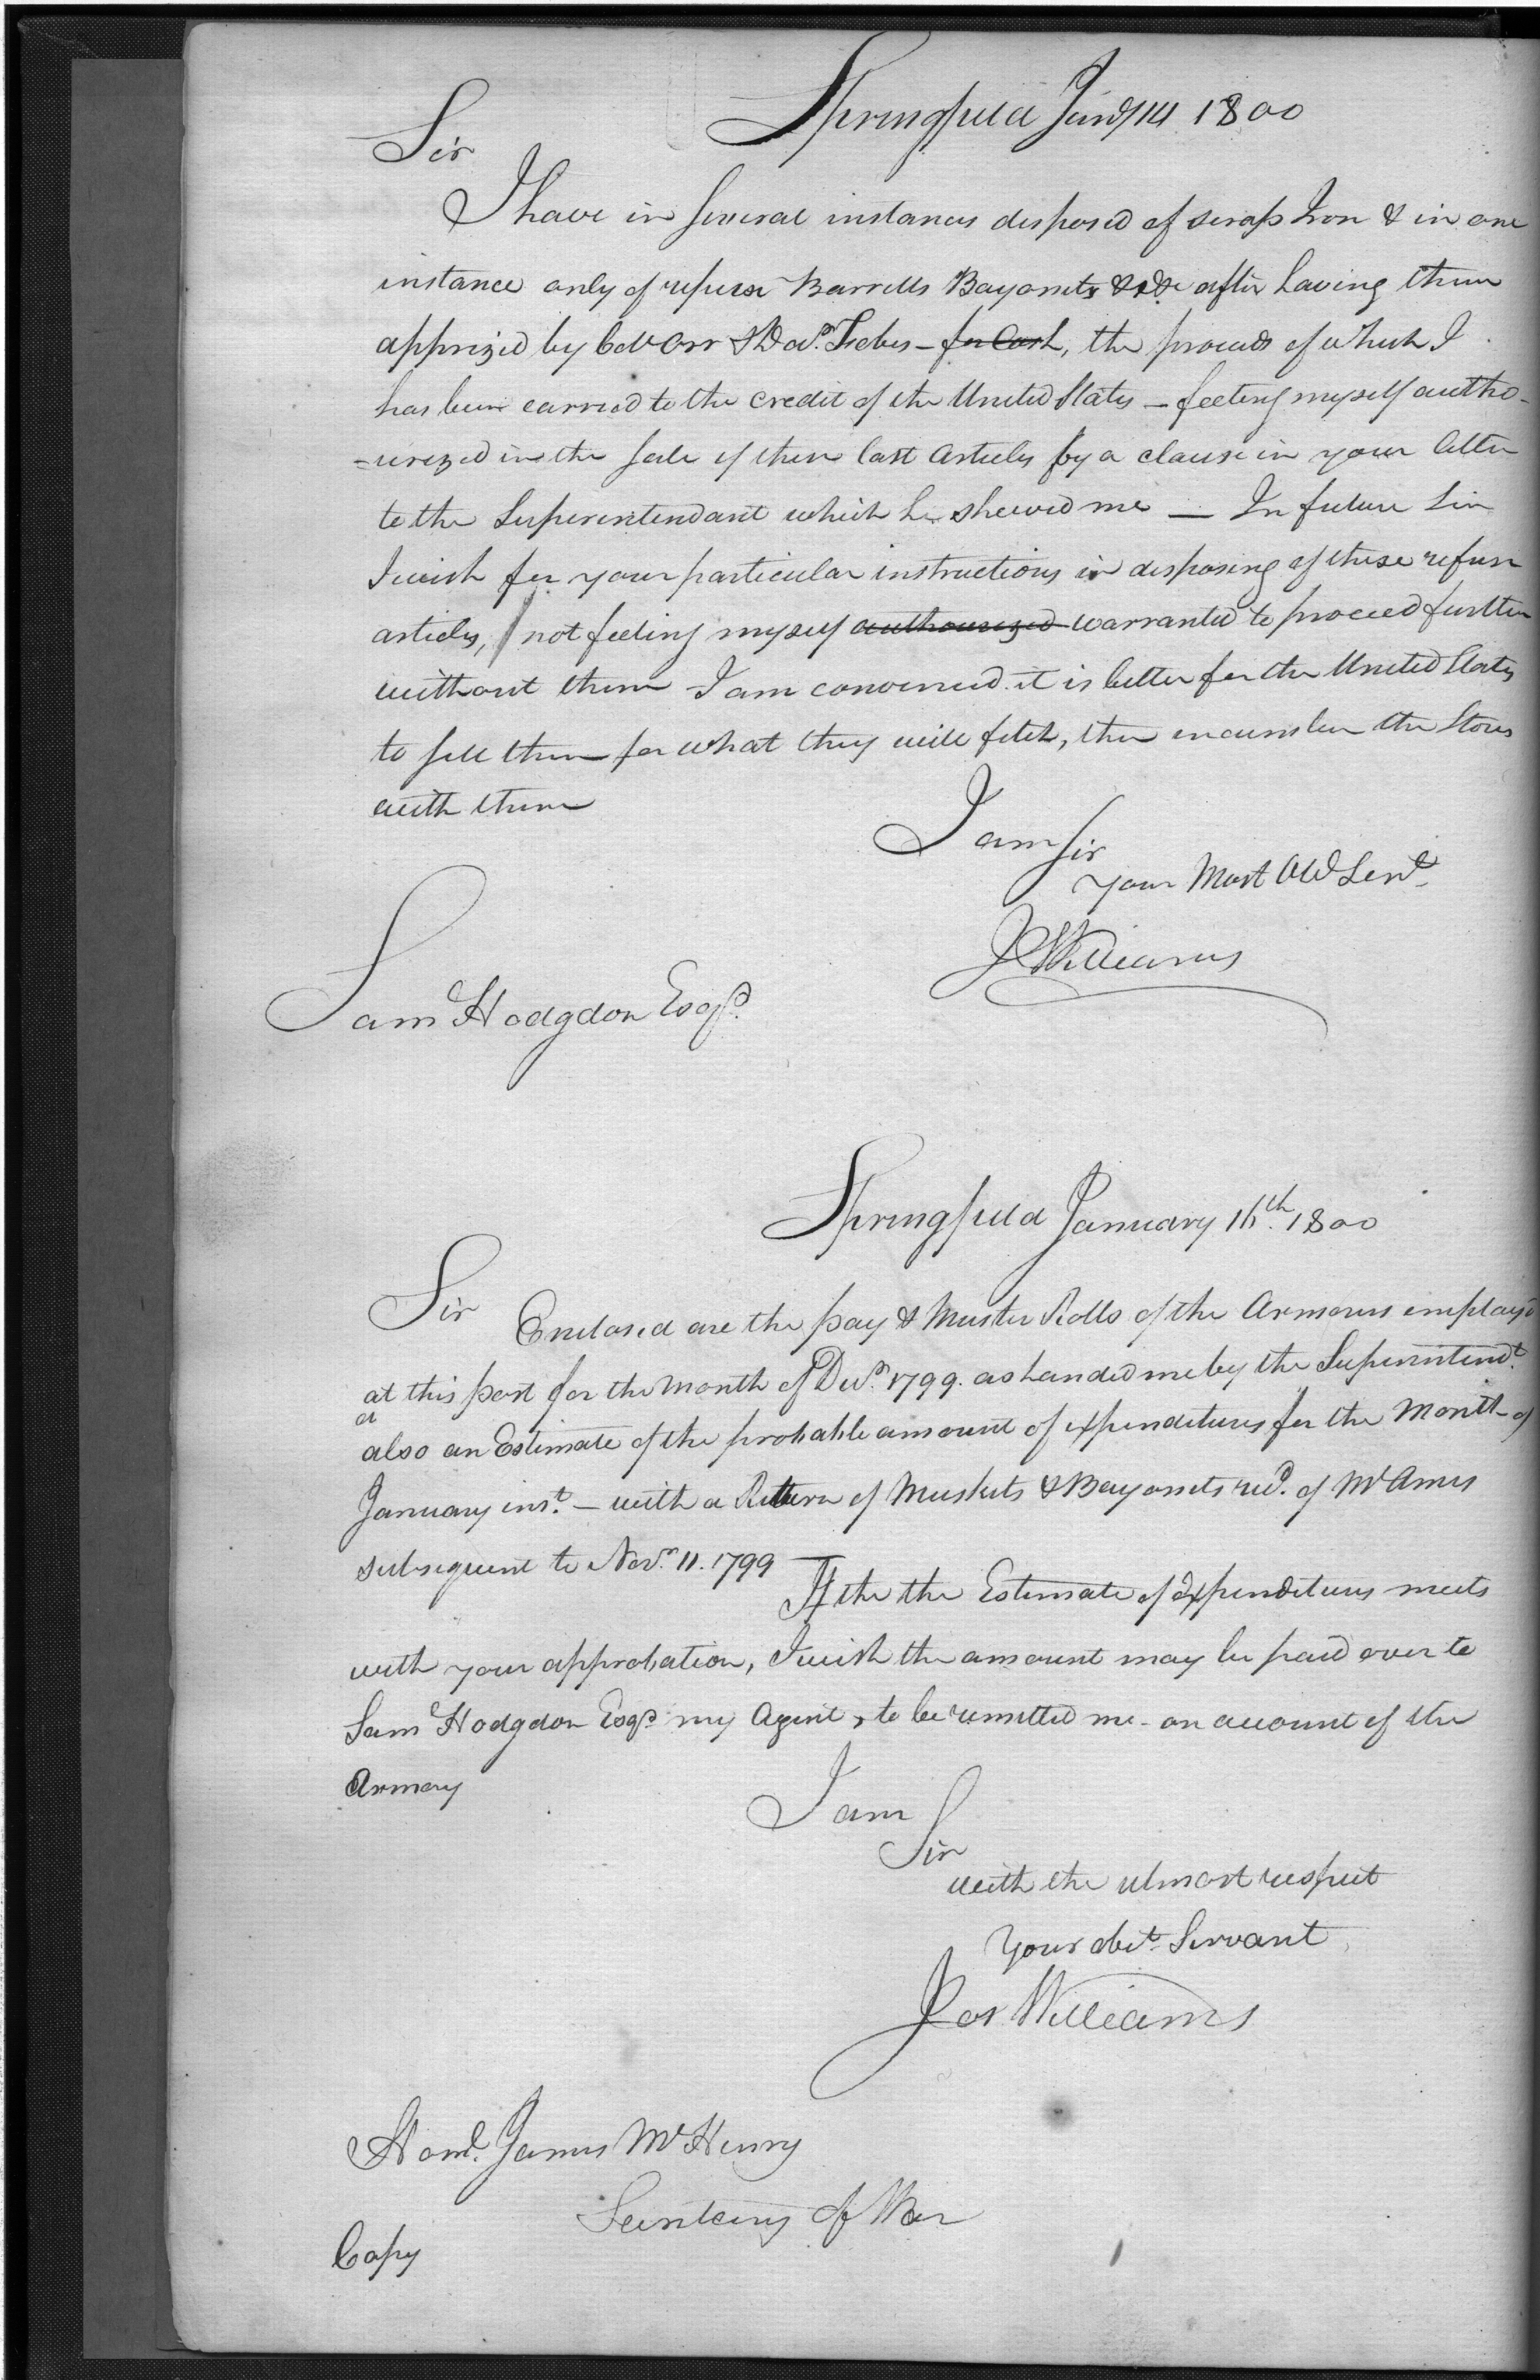 Springfield Jany 14 1800
Sir
I have in several instances disposed of scrap Iron & in one
instance only of refuse Barrells Bayonets &c &c after having them
apprized by Col Orr & Dad. - for Cash, the proceeds of which I
has been carried to the credit of the United States - feeling myself autho-
=rised in the sale of these last articles by a clause in your letter
to the Superintendant which he shewed me — In future Sir
I wish for your particular instructions in disposing of these refuse
articles, not feeling myself authourized warranted to proceed further
without them I am convinced it is better for the United States
to sell them for what they will fetch, then encumber the Stores
with them
I am Sir
your Most Obd Servt
J Williams
Saml Hodgdon Esqr.
Springfield January 16th. 1800
Sir Enclosed are the pay & Muster Rolls of the Armorers employd
at this post for the month of Decr. 1799. as handed me by the Superintendt.
also an Estimate of the probable amount of expenditures for the Month of
January inst. - with a Return of Muskets & Bayonets recd. of Mr Ames
subsequent to Novr. 11. 1799 —
If the the Estimate of Expenditures meets
with your approbation, I wish the amount may be paid over to
Saml Hodgdon Esqr my Agent, to be remitted me - on account of the
Armory
I am
Sir
with the utmost respect
Your obt. Servant
Jos Williams
Honl. James McHenry
Secretary of War
Copy